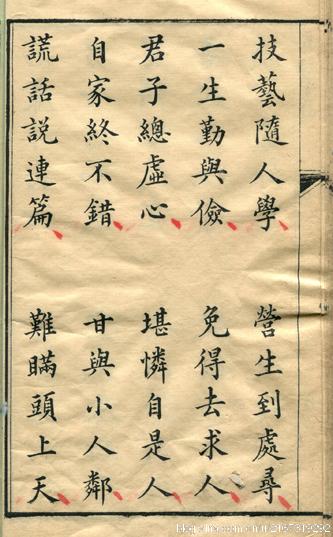 技藝隨人學
營生到處尋
一生勤與儉
免得去求人
君子總虛心
堪憐自是人
自家終不錯
甘與小人鄰
謊話説連篇
難瞞頭上天